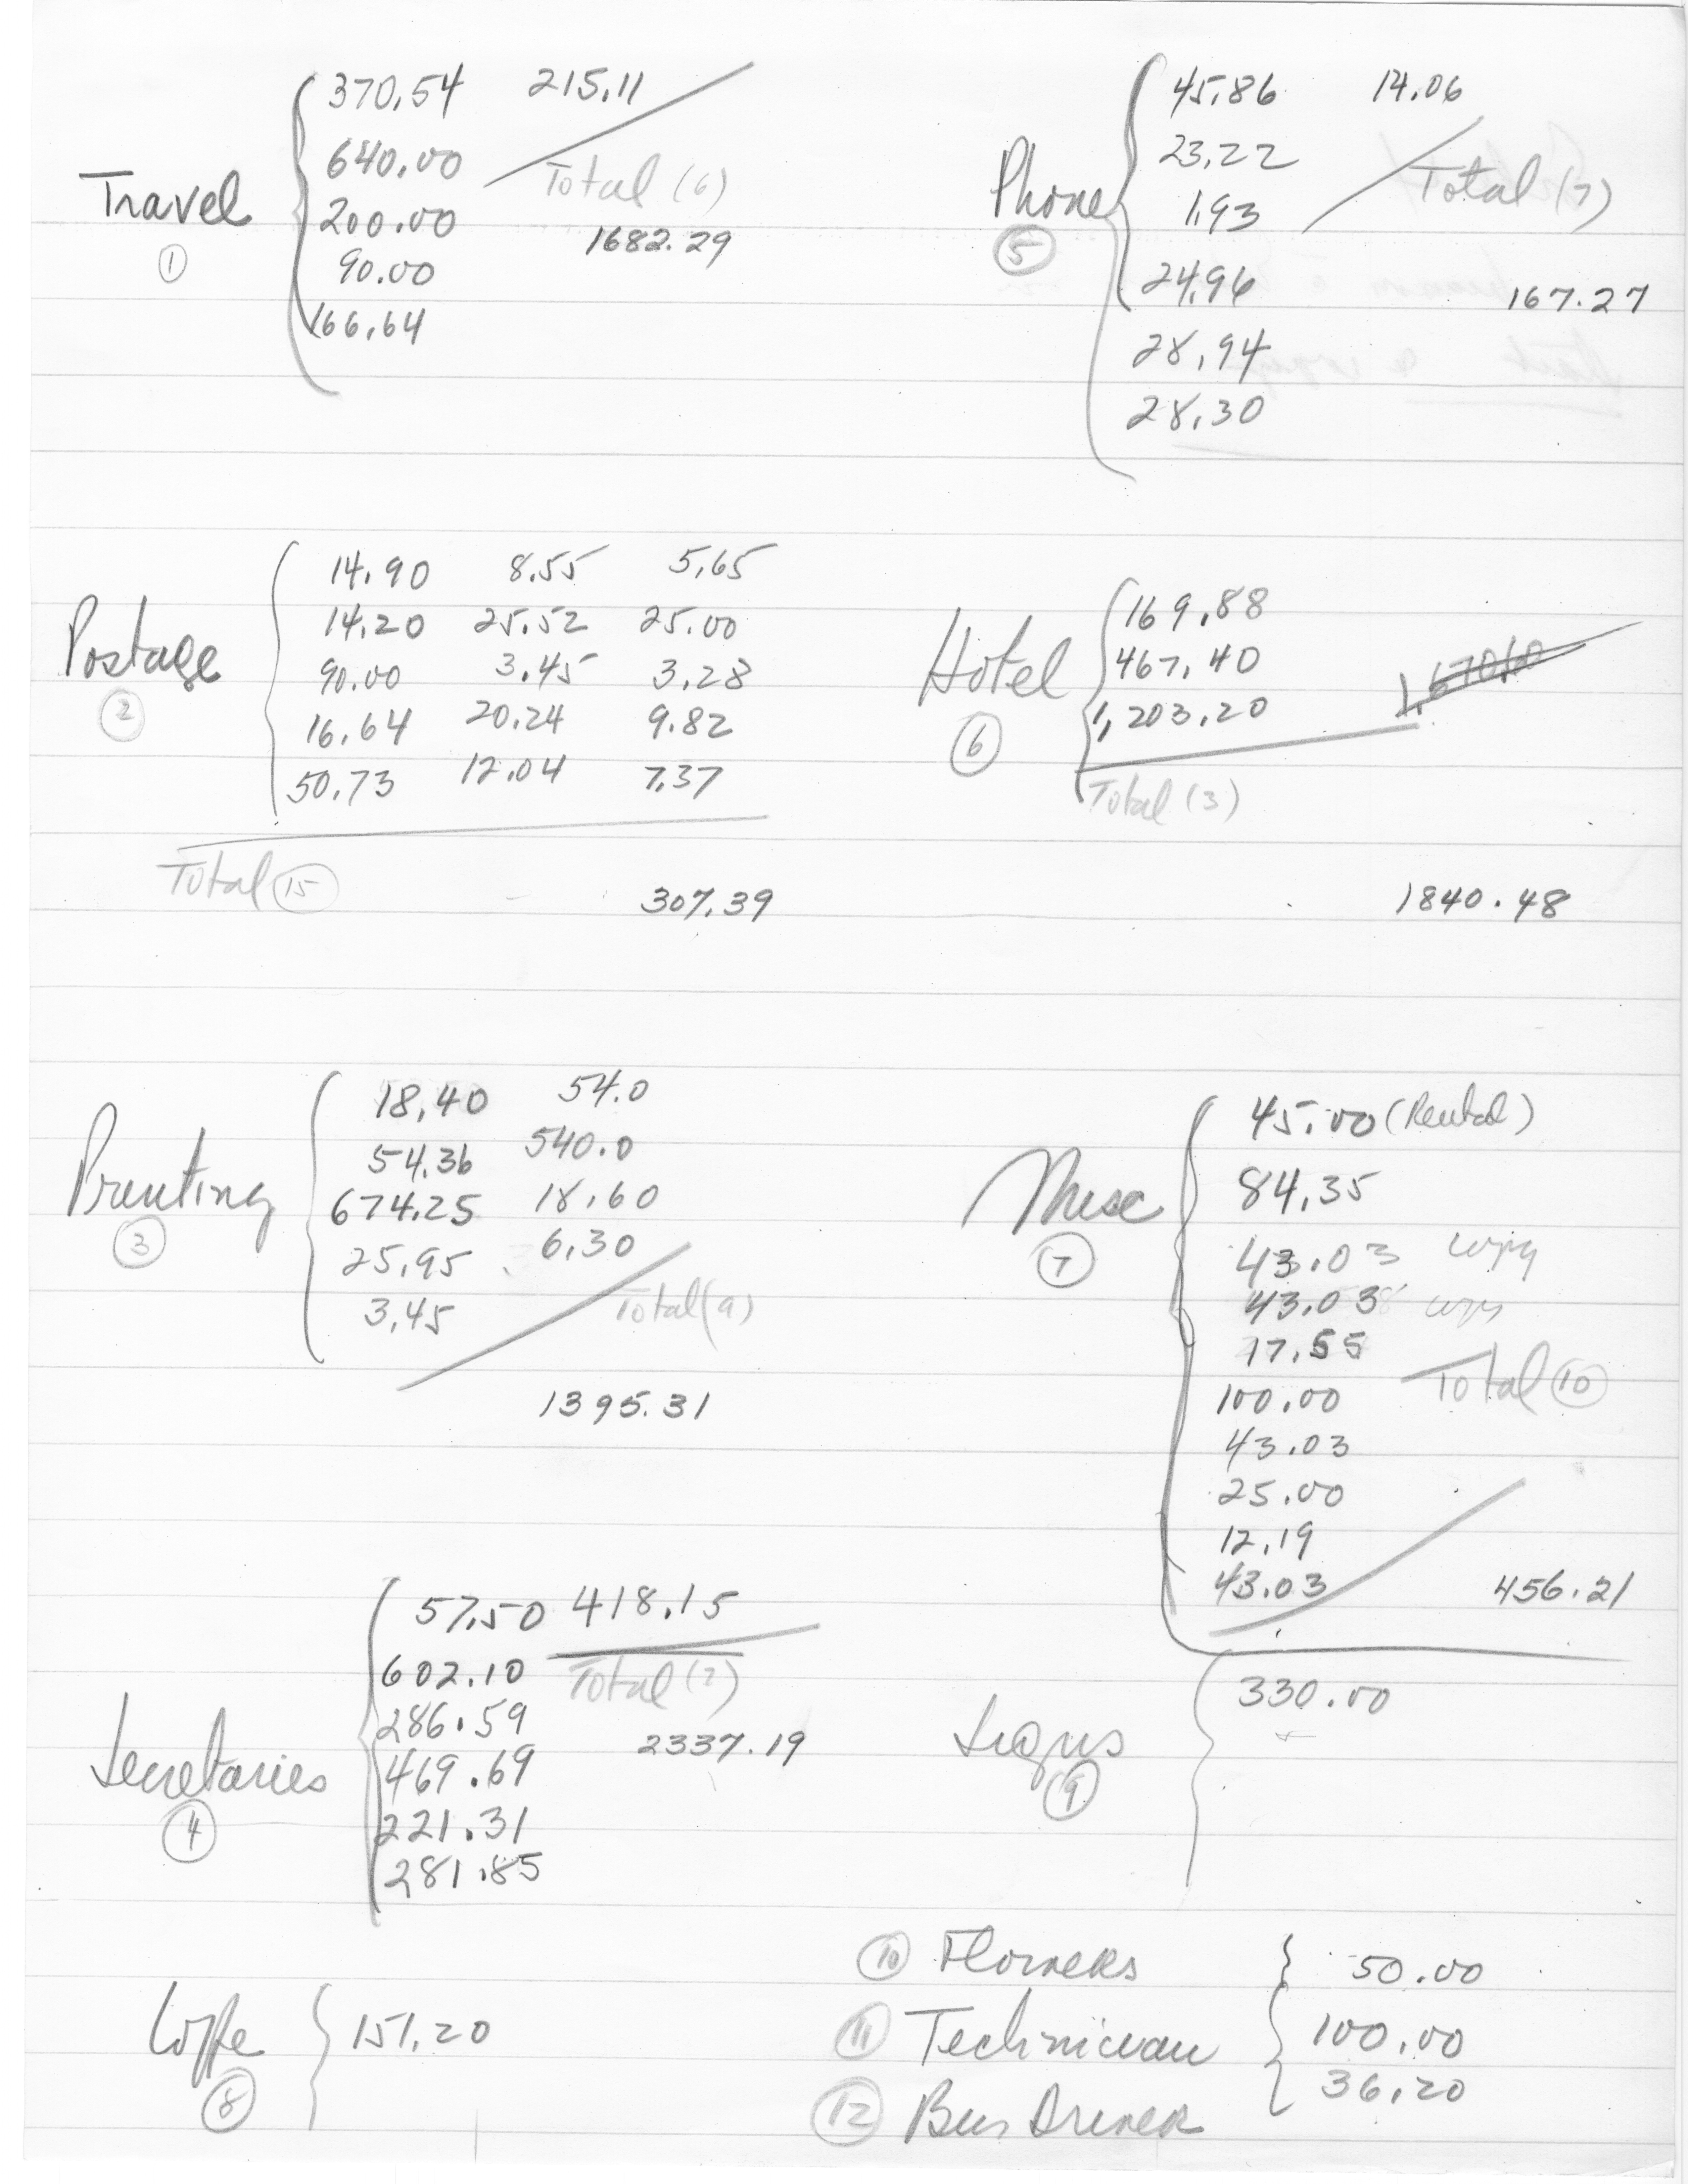 Travel
①
370.54 215.11
640.00 Total (6)
200.00 1682.29
90.00
166.64
Phone
⑤
45.86 14.06
23.22
1.93 Total (7)
24.96 167.27
28.94
28.30
Postage
②
14.90 8.55 5.65
14.20 25.52 25.00
90.00 3.45 3.28
16.64 20.24 9.82
50.73 12.04 7.37
Total ⑮ 307.39
Hotel
⑥
169.88
467.40
1,203.20
Total (3)
1840.48
Printing
③
18.40 54.0
54.36 540.0
674.25 18.60
25.95 6.30
3.45 Total (9)
1395.31
Misc
⑦
45.00 (Rental)
84.35
43.03 copy
43.03 copy
17.55
100.00 Total ⑩
43.03
25.00
12.19
43.03 456.21
Secretaries
④
57.50 418.15
602.10 Total (7)
286.59 2337.19
469.69
221.31
281.85
Signs
⑨
330.00
Coffe
⑧
151.20
⑩ Flowers 50.00
⑪ Technician 100.00
⑫ Bus Driver 36.20